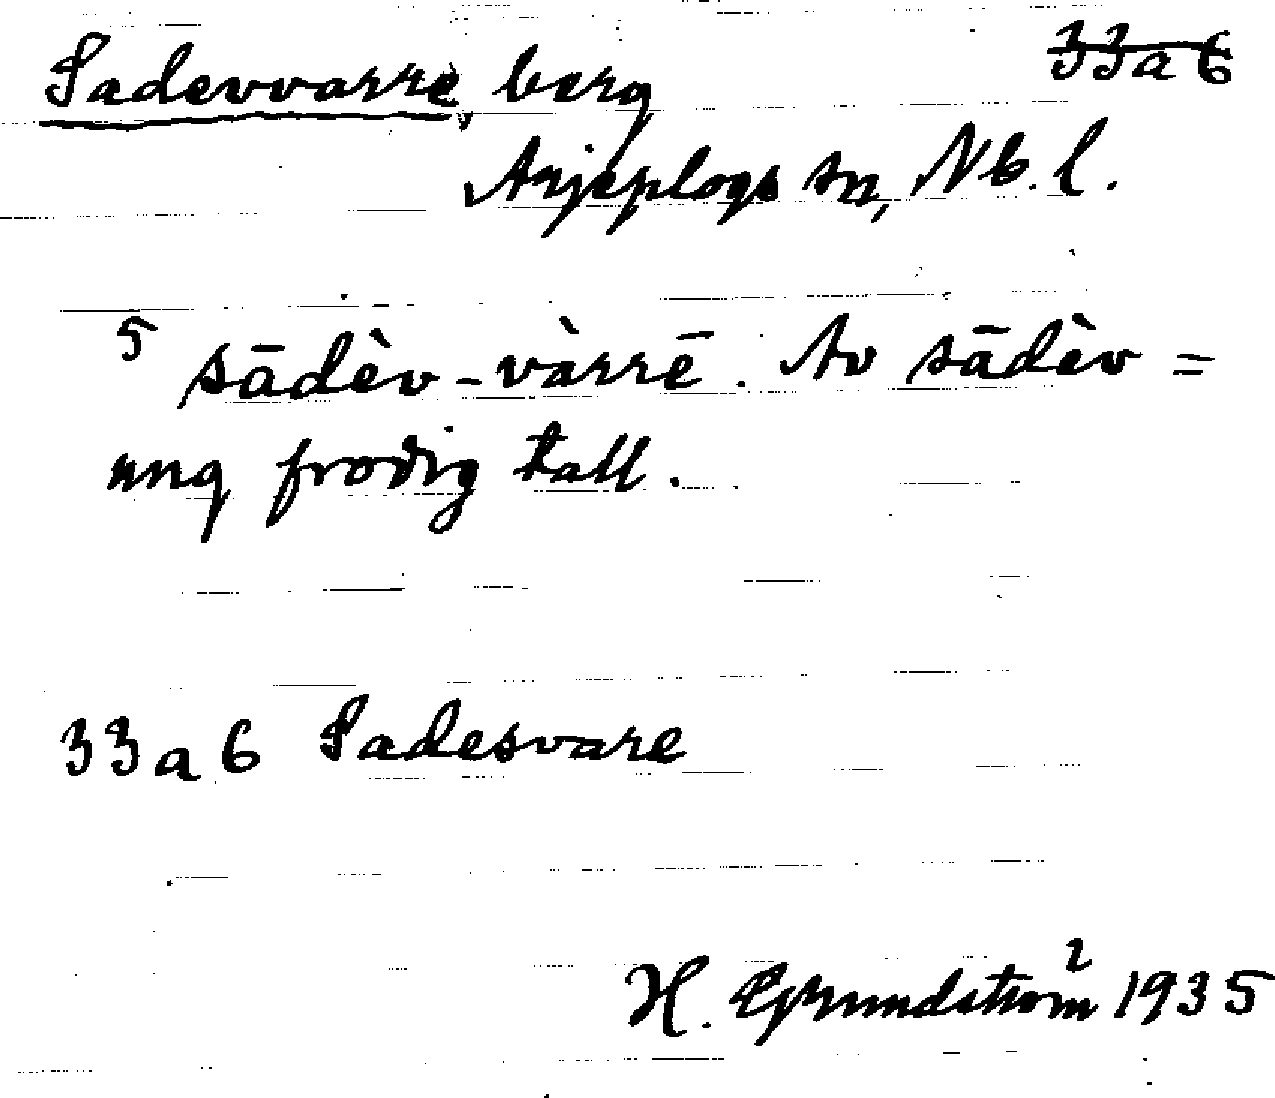 Sadevvarre, berg 33a6
Arjeplogs sn, Nb. l.
5 sādèv-vàrrē. Av sādèv =
ung frodig tall.
33a6 Sadesvare
H. Grundström 1935